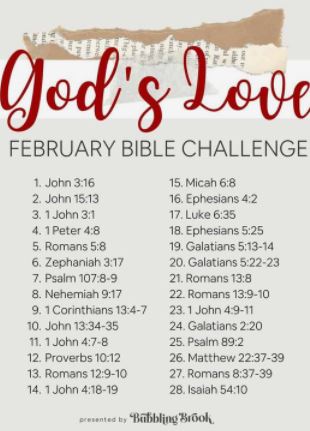 God's Love
FEBRUARY BIBLE CHALLENGE
1. John 3:16
2. John 15:13
3. 1 John 3:1
4. 1 Peter 4:8
5. Romans 5:8
6. Zephaniah 3:17
7. Psalm 107:8-9
8. Nehemiah 9:17
9. 1 Corinthians 13:4-7
10. John 13:34-35
11. 1 John 4:7-8
12. Proverbs 10:12
13. Romans 12:9-10
14. 1 John 4:18-19
15. Micah 6:8
16. Ephesians 4:2
17. Luke 6:35
18. Ephesians 5:25
19. Galatians 5:13-14
20. Galatians 5:22-23
21. Romans 13:8
22. Romans 13:9-10
23. 1 John 4:9-11
24. Galatians 2:20
25. Psalm 89:2
26. Matthew 22:37-39
27. Romans 8:37-39
28. Isaiah 54:10
presented by Bubbling Brook